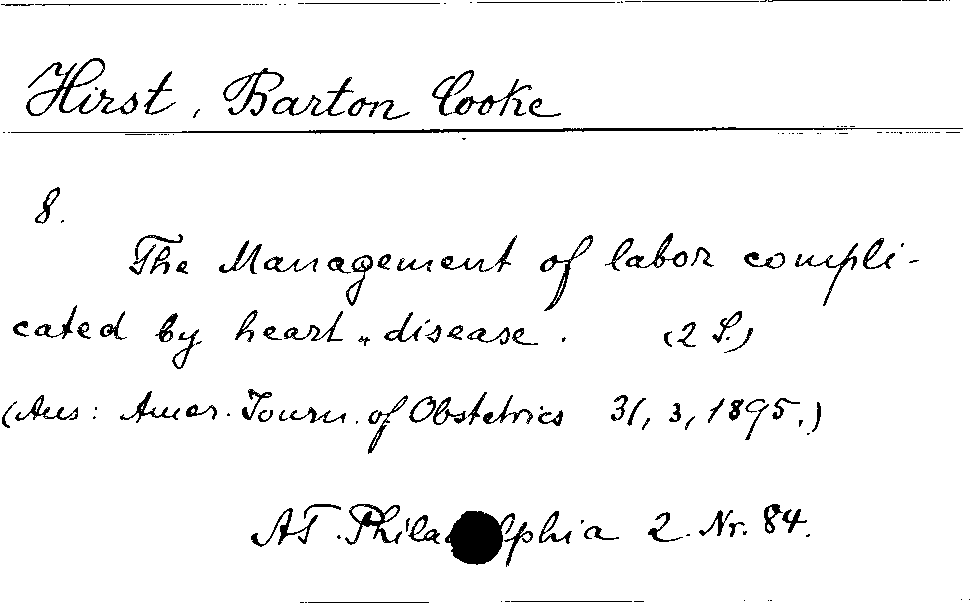 Hirst, Barton Cooke
8.
The Management of labor compli-
cated by heart "disease. (2 S.)
(Aus: Amer. Journ. of Obstetrics 31, 3, 1895.)
AT. Philadelphia 2. Nr. 84.